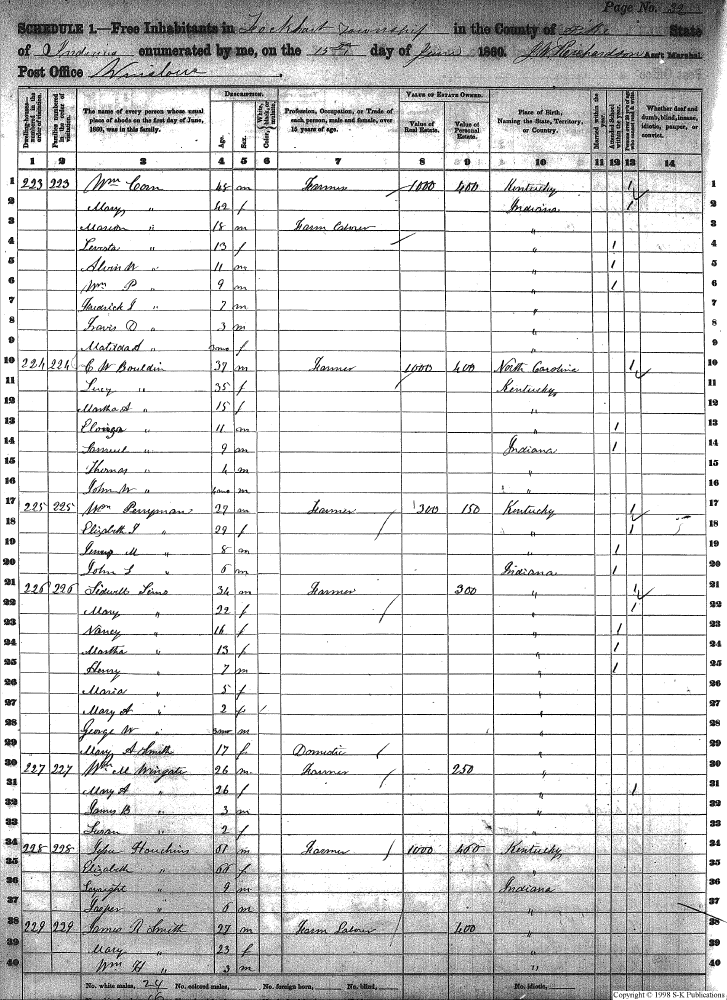 Page No. 32
SCHEDULE 1.—Free Inhabitants in Lockhart Township in the County of Pike State
of Indiana enumerated by me, on the 15th day of June 1860. Richardson Ass't Marshal.
Post Office Winslow
Dwelling-houses—numbered in the order of visitation. Families numbered in the order of visitation. The name of every person whose usual place of abode on the first day of June, 1860, was in this family. DESCRIPTION. Age. Sex. Color, White, black, or mulatto. Profession, Occupation, or Trade of each person, male and female, over 15 years of age. VALUE OF ESTATE OWNED. Value of Real Estate. Value of Personal Estate. Place of Birth, Naming the State, Territory, or Country. Married within the year. Attended School within the year. Persons over 20 y'rs of age who cannot read & write. Whether deaf and dumb, blind, insane, idiotic, pauper, or convict.
1 2 3 4 5 6 7 8 9 10 11 12 13 14
1 223 223 Wm Coan 48 m Farmer 1000 400 Kentucky 1 1
2 Mary " 42 f Indiana 1 2
3 Marion " 18 m Farm Laborer " 3
4 " 13 f " 1 4
5 Alvin W " 11 m " 1 5
6 Wm P " 9 m " 1 6
7 Fredrick J " 7 m " 7
8 Travis D " 3 m " 8
9 Matilda A " 3mo f " 9
10 224 224 C W Bouldin 37 m Farmer 1000 400 North Carolina 1 10
11 Lucy " 35 f Kentucky 11
12 Martha A " 15 f " 12
13 " 11 m " 1 13
14 Samuel " 9 m Indiana 1 14
15 Thomas " 4 m " 15
16 John W " 4mo m " 16
17 225 225 Wm Perryman 27 m Farmer 300 150 Kentucky 1 17
18 Elizabeth J " 29 f " 1 18
19 M " 8 m " 1 19
20 John L " 6 m Indiana 1 20
21 226 226 Sidwell 34 m Farmer 300 " 1 21
22 Mary " 22 f " 1 22
23 Nancy " 16 f " 1 23
24 Martha " 13 f " 1 24
25 Henry " 7 m " 1 25
26 Maria " 5 f " 26
27 Mary A " 2 f " 27
28 George W " 3mo m " 28
29 Mary A Smith 17 f Domestic " 29
30 227 227 Wm M Wingate 26 m Farmer 250 " 30
31 Mary A " 26 f " 1 31
32 James B " 3 m " 32
33 Susan " 2 f " 33
34 228 228 John Houchins 61 m Farmer 1000 400 Kentucky 34
35 Elizabeth " 66 f " 35
36 " 9 m Indiana 36
37 Jasper " 6 m " 37
38 229 229 James R Smith 27 m Farm Labor 400 " 38
39 Mary " 23 f " 39
40 Wm H " 3 m " 40
No. white males, 24 No. colored males, No. foreign born, No. blind, No. idiotic,
16
Copyright © 1998 S-K Publications